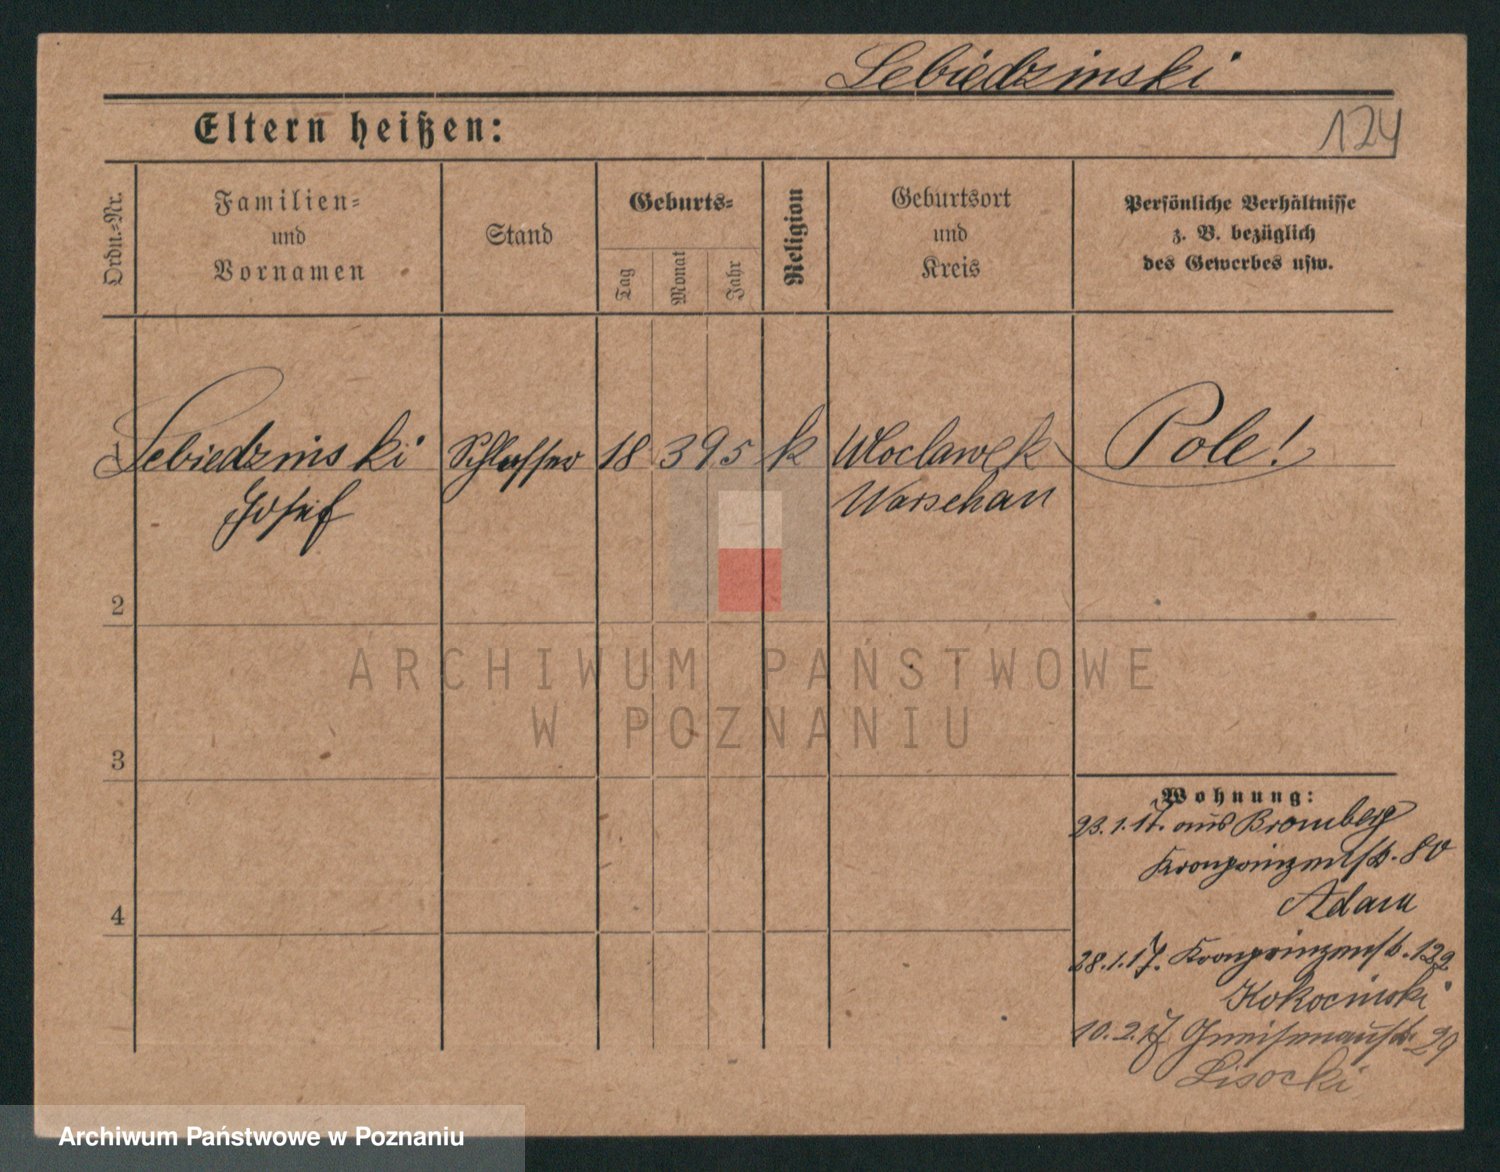 Lebiedzinski
124
Eltern heißen:
Ordn.-Nr.
Familien-
und
Vornamen
Stand
Geburts-
Tag
Monat
Jahr
Religion
Geburtsort
und
Kreis
Persönliche Verhältnisse
z. B. bezüglich
des Gewerbes usw.
1 Lebiedzinski Schlosser 18 3 95 k Wloclawek Pole!
Josef Warschau
2
3
4
Wohnung:
23.1.17. aus Bromberg
Kronprinzenstr. 80
Adam
28.1.17. Kronprinzenstr. 122
Kokocinski
10.2.17 Gneisenaustr. 29
Lisocki
ARCHIWUM PAŃSTWOWE
W POZNANIU
Archiwum Państwowe w Poznaniu